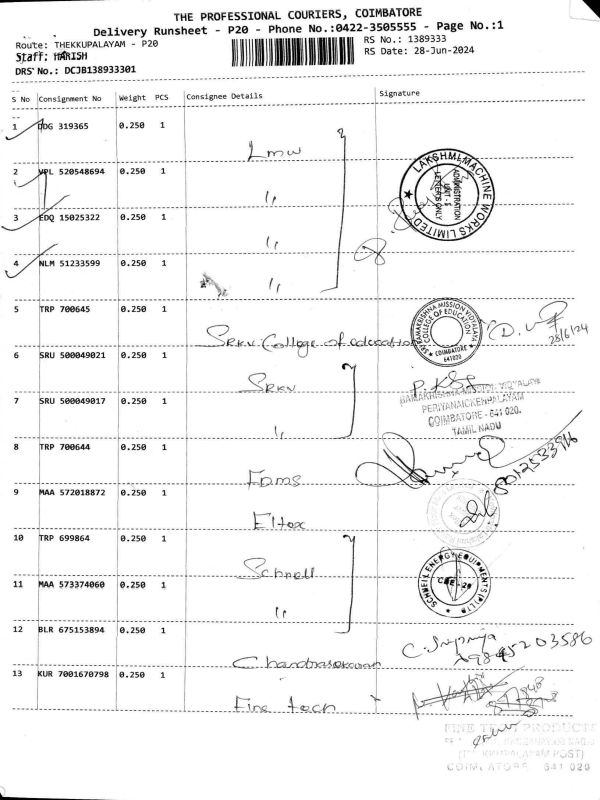 THE PROFESSIONAL COURIERS, COIMBATORE
Delivery Runsheet - P20 - Phone No.:0422-3505555 - Page No.:1
Route: THEKKUPALAYAM - P20
RS No.: 1389333
Staff: HARISH
RS Date: 28-Jun-2024
DRS No.: DCJB138933301
S No Consignment No Weight PCS Consignee Details Signature
1 DDG 319365 0.250 1
Lmw
2 VPL 520548694 0.250 1
"
3 EDQ 15025322 0.250 1
"
4 NLM 51233599 0.250 1
"
LAKSHMI MACHINE WORKS LIMITED
ADMINISTRATION
UNIT - II
LETTERS ONLY
5 TRP 700645 0.250 1
SRKV College of education
SRI RAMAKRISHNA MISSION VIDYALAYA
COLLEGE OF EDUCATION
COIMBATORE
641020
28/6/24
6 SRU 500049021 0.250 1
SRKV
7 SRU 500049017 0.250 1
"
RAMAKRISHNA MISSION VIDYALAYA
PERIYANAICKENPALAYAM
COIMBATORE - 641 020.
TAMIL NADU
8 TRP 700644 0.250 1
Fdms
9 MAA 572018872 0.250 1
Eltex
10 TRP 699864 0.250 1
Schnell
11 MAA 573374060 0.250 1
"
SCHNELL ENERGY EQUIPMENTS (P) LTD
CBE - 20
12 BLR 675153894 0.250 1
Chandrasekaran
C. Supriya
9845203586
13 KUR 7001670798 0.250 1
Fine tech
FINE PRODUCTS
POST)
COIMBATORE 641 020